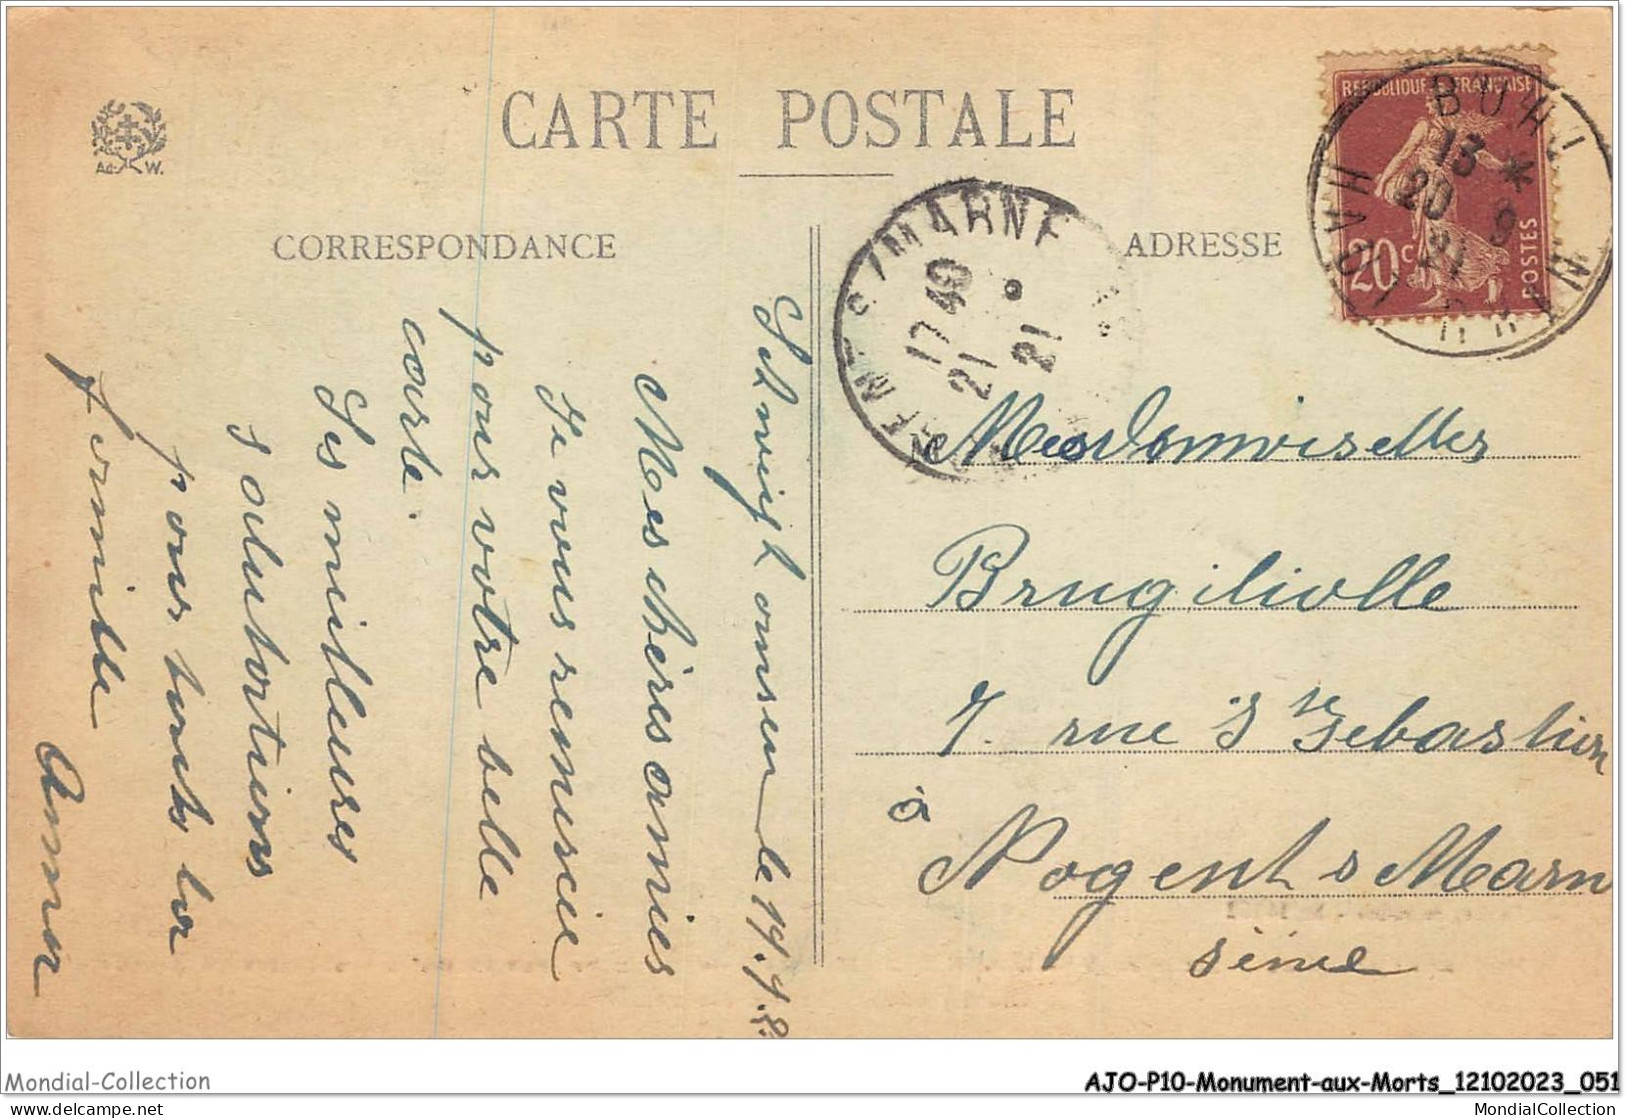 CARTE POSTALE
Ad. W.
CORRESPONDANCE
ADRESSE
REPUBLIQUE FRANÇAISE
20c
POSTES
13 *
20 9
21
S/MARNE
17 40
21 9
21
le 19.9.21
Mes chères amies
Je vous remercie
pour votre belle
carte.
Les meilleures
salutations
pour toute la
famille
Mesdemoiselles
7. rue St Sebastien
à
Nogent s Marn
Seine
Mondial-Collection
AJO-P10-Monument-aux-Morts_12102023_051
delcampe.net
MondialCollection